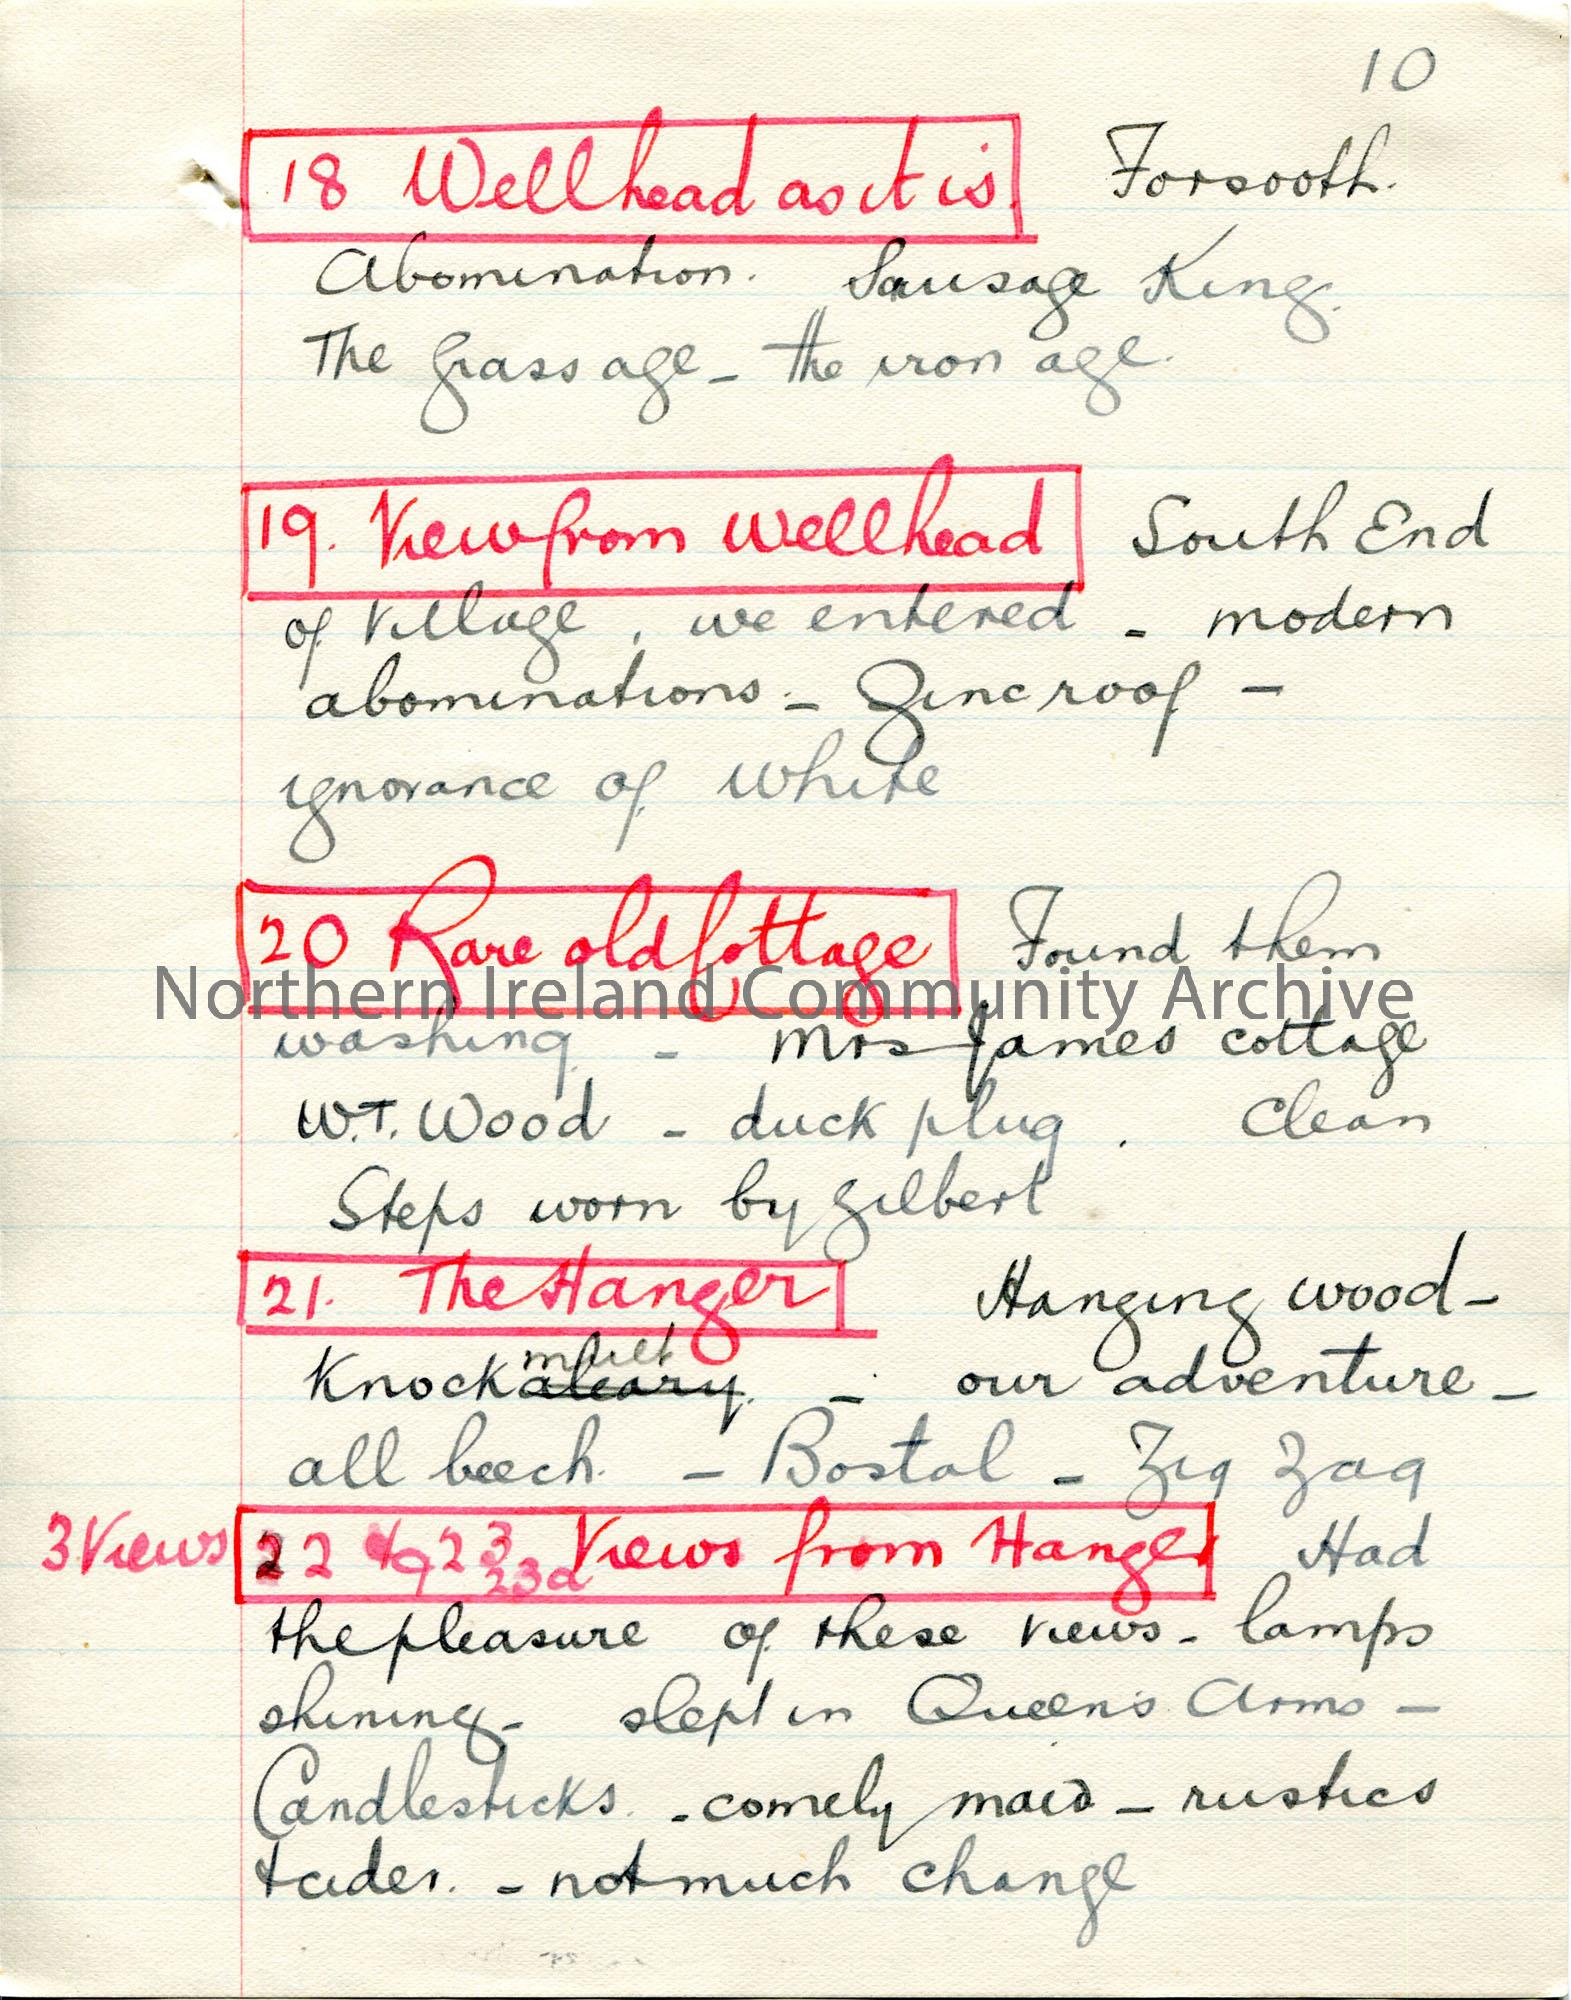 10
18 Wellhead as it is. Forsooth.
Abomination. Sausage King.
The Grass age - the iron age.
19. View from Wellhead South End
of Village, we entered - modern
abominations - Zinc roof -
ignorance of White
20 Rare old Cottage Found them
Northern Ireland Community Archive
washing - Mrs James cottage
W.T. Wood - duck plug. Clean
Steps worn by Gilbert
21. The Hanger Hanging wood -
mult
Knockaleary. - our adventure -
all beech. - Bostal - Zig Zag
3 Views 22 23 23a Views from Hanger Had
the pleasure of these views - lamps
shining - slept in Queens Arms -
Candlesticks. - comely maid - rustics
- not much change